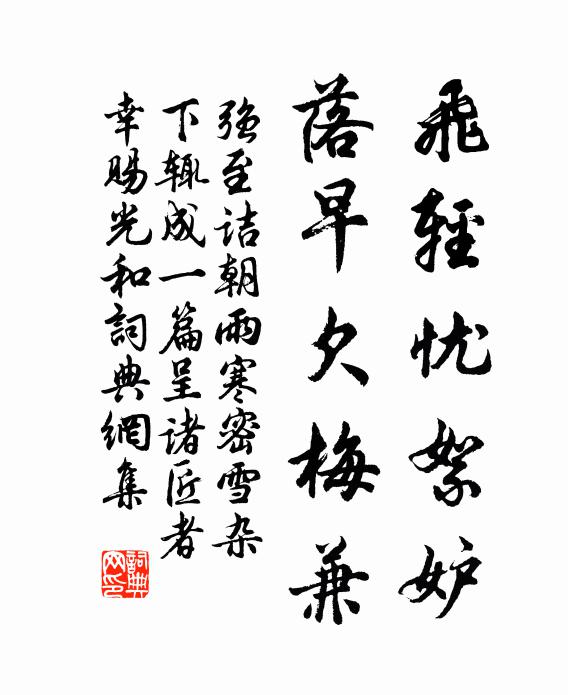 飛輕忧絮妒
落早欠梅兼
強至诘朝雨寒密雪杂
下輙成一篇呈诸匠者
幸賜光和詞典網集
詞典网印